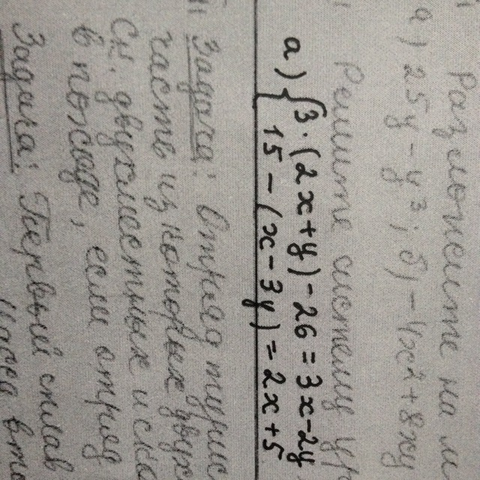 Разложите на м
а) 25y - y³; б) -4x² + 8xy
Решите систему ур
а) { 3·(2x+y) - 26 = 3x - 2y
15 - (x - 3y) = 2x + 5
Задача: Отряд турис
часть из которых двух
см. двухместных и ско
в походе, если отряд
Задача: Первый сплав